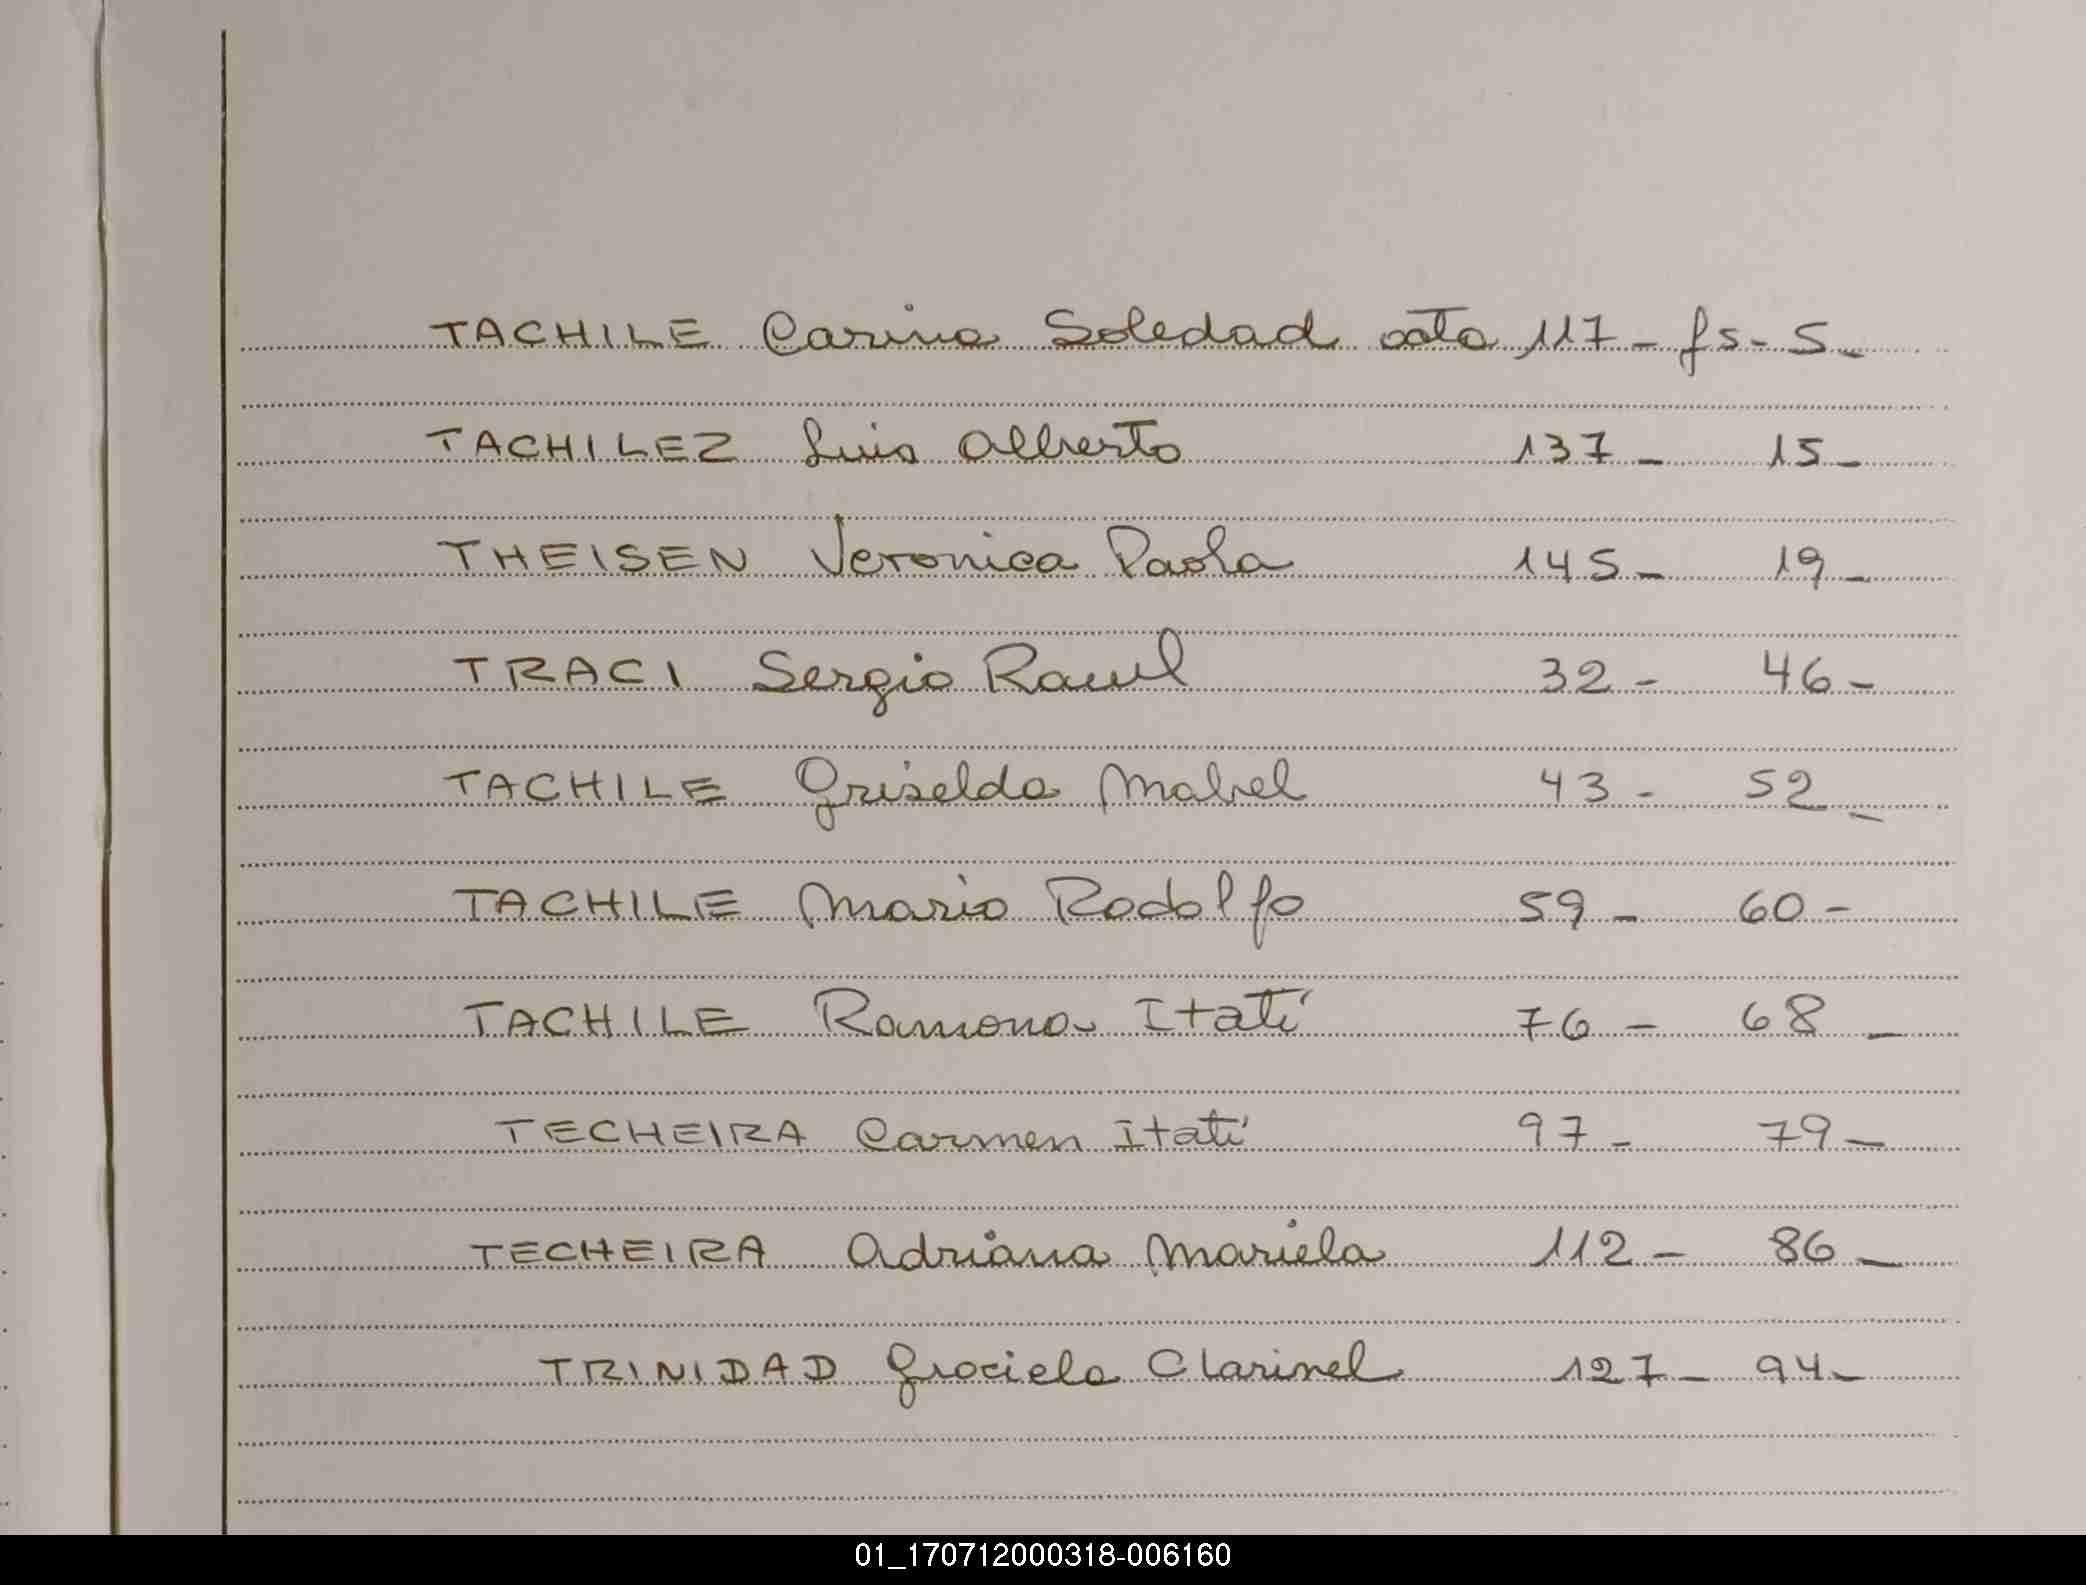 TACHILE Carina Soledad acta 117 - fs - 5 -
TACHILEZ Luis Alberto 137 - 15 -
THEISEN Veronica Paola 145 - 19 -
TRACI Sergio Raul 32 - 46 -
TACHILE Griselda Mabel 43 - 52 -
TACHILE Mario Rodolfo 59 - 60 -
TACHILE Ramona Itatí 76 - 68 -
TECHEIRA Carmen Itatí 97 - 79 -
TECHEIRA Adriana Mariela 112 - 86 -
TRINIDAD Graciela Clarinel 127 - 94 -
01_170712000318-006160